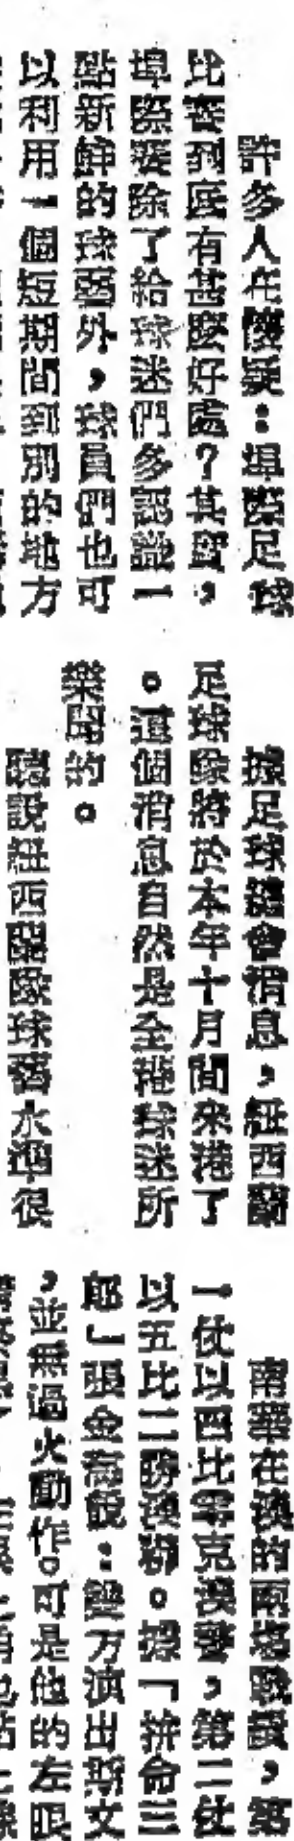 許多人在懷疑：埠際足球
比賽到底有甚麼好處？其實，
埠際賽除了給球迷們多認識一
點新鮮的球藝外，球員們也可
以利用一個短期間到別的地方
據足球總會消息，紐西蘭
足球隊將於本年十月間來港了
。這個消息自然是全港球迷所
樂聞的。
聽說紐西蘭隊球藝水準很
南華在澳的兩場戰績，第
一仗以四比零克澳警，第二仗
以五比二勝澳聯。據「拚命三
郎」張金海說：雙方演出斯文
，並無過火動作。可是他的左眼